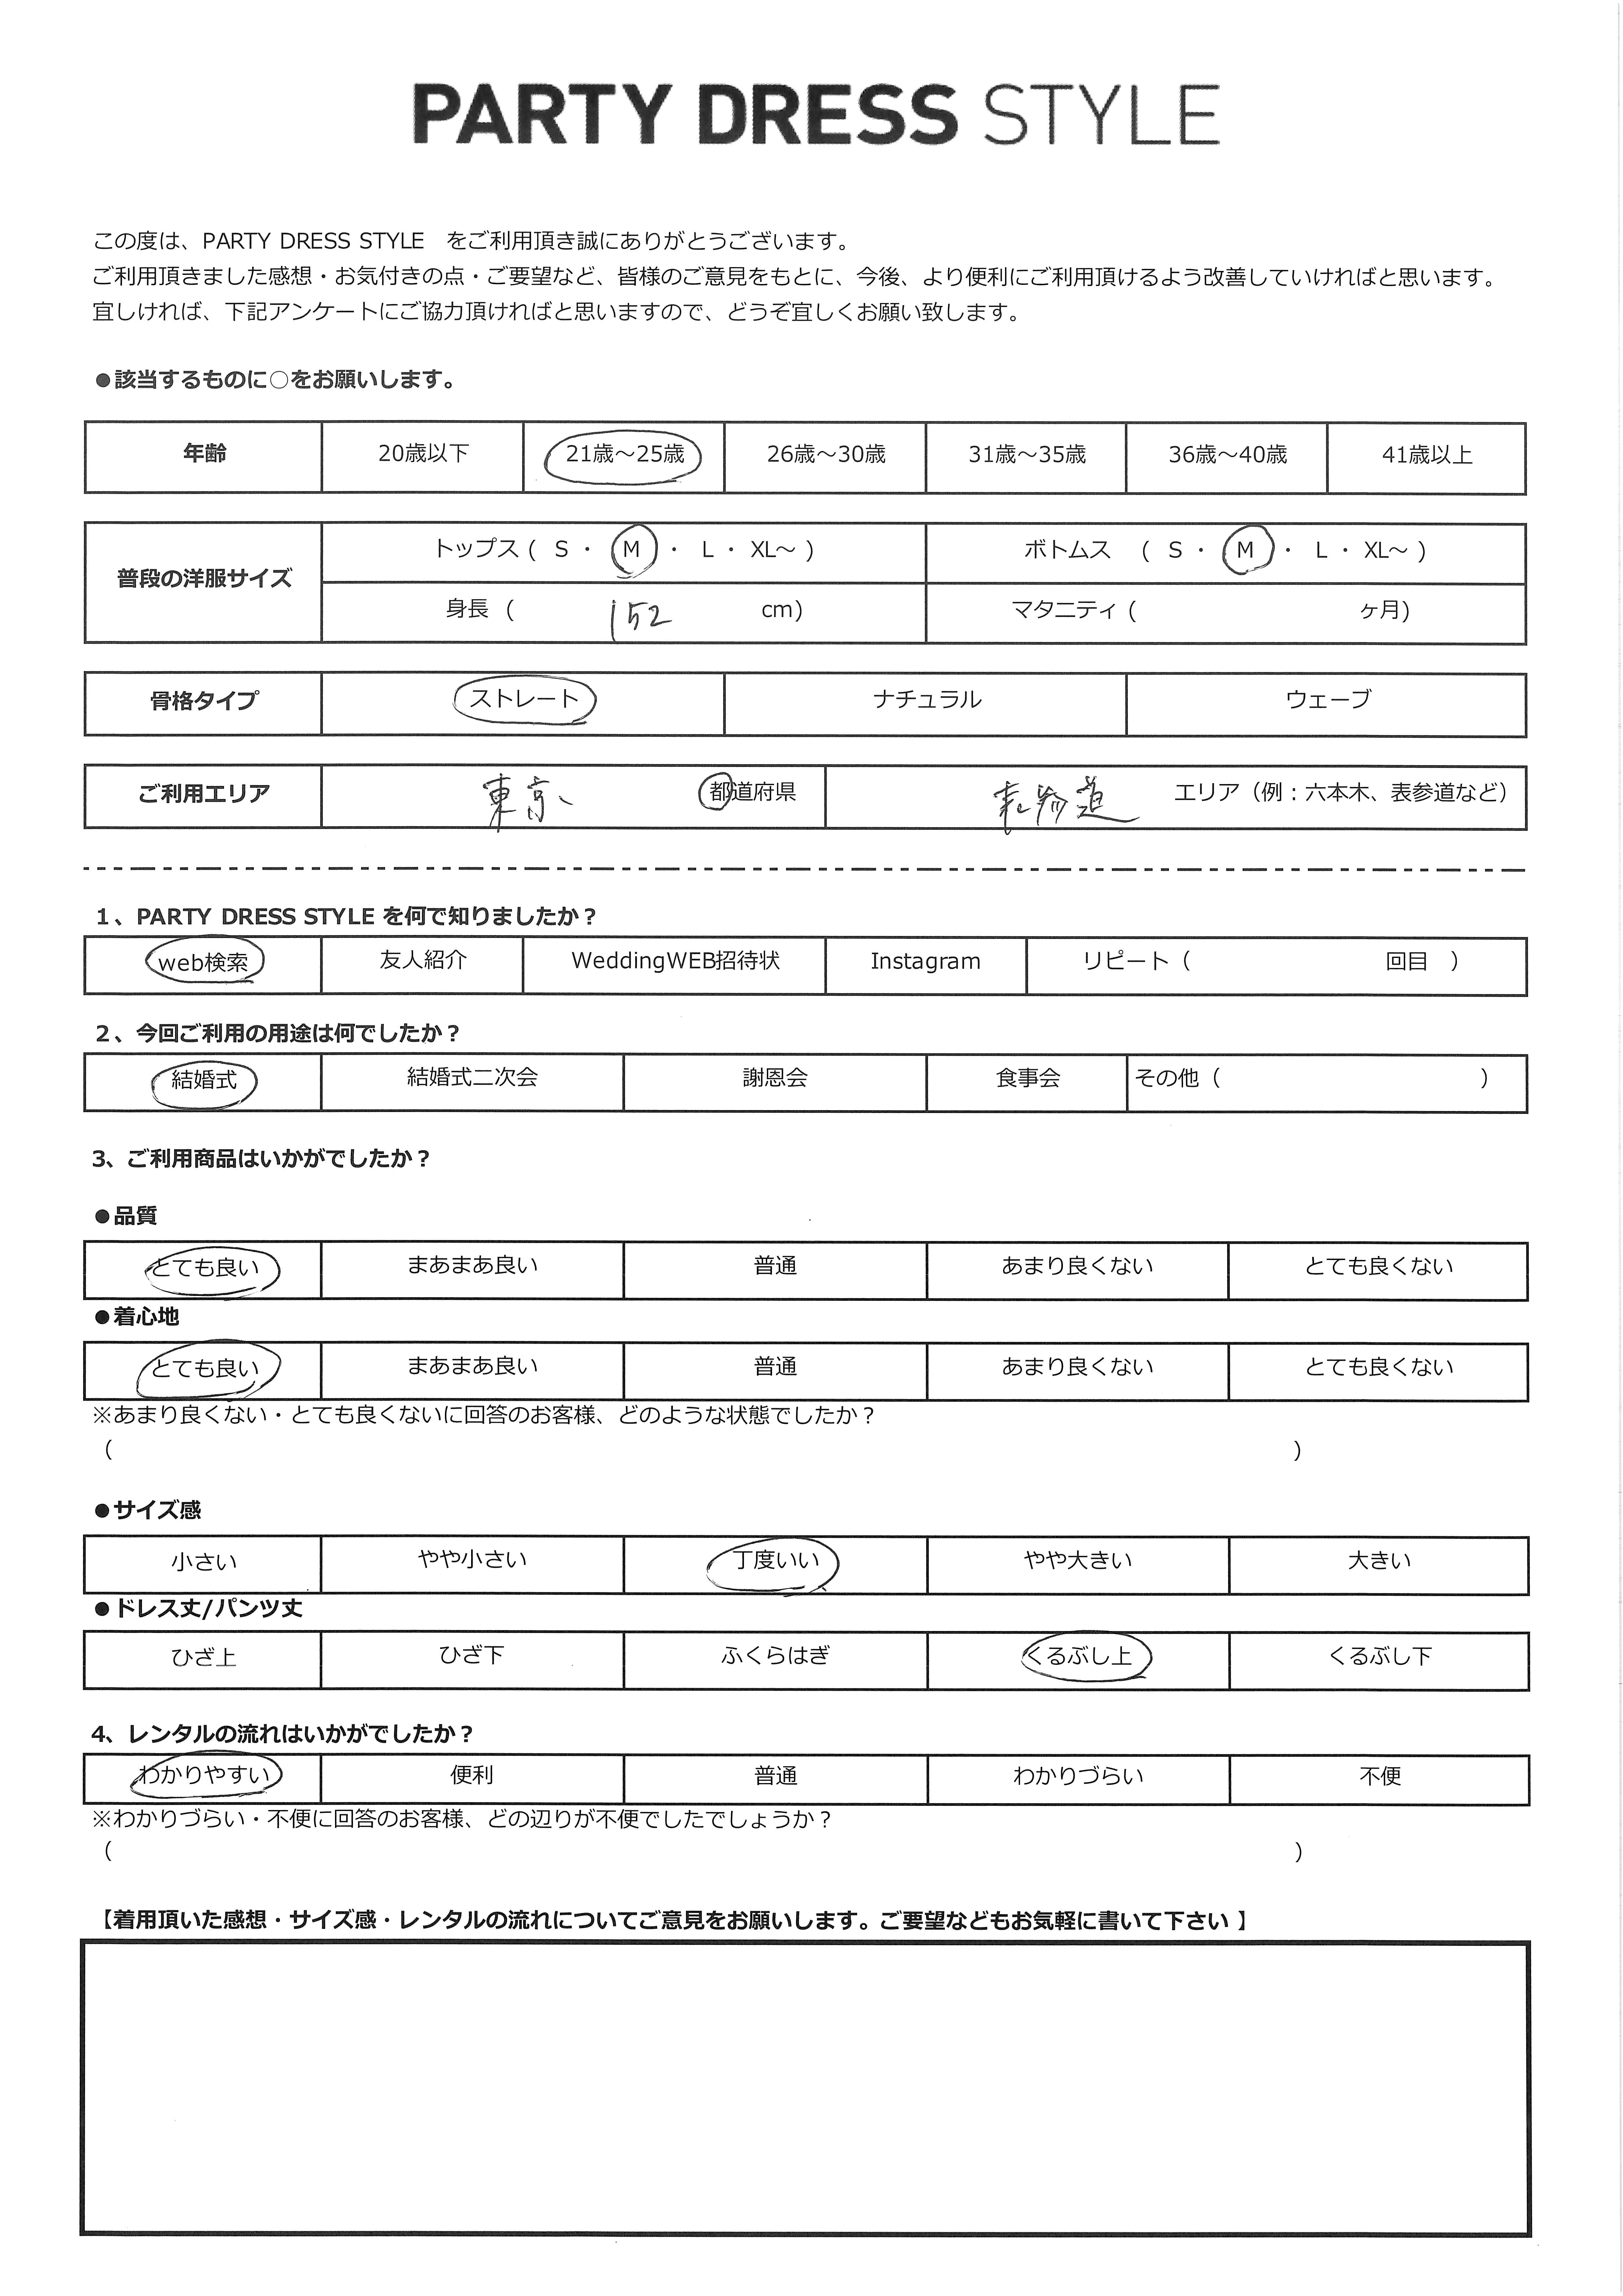 PARTY DRESS STYLE
この度は、PARTY DRESS STYLE　をご利用頂き誠にありがとうございます。
ご利用頂きました感想・お気付きの点・ご要望など、皆様のご意見をもとに、今後、より便利にご利用頂けるよう改善していければと思います。
宜しければ、下記アンケートにご協力頂ければと思いますので、どうぞ宜しくお願い致します。
●該当するものに○をお願いします。
年齢 20歳以下 21歳～25歳 26歳～30歳 31歳～35歳 36歳～40歳 41歳以上
普段の洋服サイズ
トップス ( S ・ M ・ L ・ XL～ ) ボトムス ( S ・ M ・ L ・ XL～ )
身長 ( 152 cm) マタニティ ( ヶ月)
骨格タイプ ストレート ナチュラル ウェーブ
ご利用エリア 東京 都道府県 表参道 エリア（例：六本木、表参道など）
1、PARTY DRESS STYLE を何で知りましたか？
web検索 友人紹介 WeddingWEB招待状 Instagram リピート（ 回目 ）
2、今回ご利用の用途は何でしたか？
結婚式 結婚式二次会 謝恩会 食事会 その他（ ）
3、ご利用商品はいかがでしたか？
●品質
とても良い まあまあ良い 普通 あまり良くない とても良くない
●着心地
とても良い まあまあ良い 普通 あまり良くない とても良くない
※あまり良くない・とても良くないに回答のお客様、どのような状態でしたか？
（ ）
●サイズ感
小さい やや小さい 丁度いい やや大きい 大きい
●ドレス丈/パンツ丈
ひざ上 ひざ下 ふくらはぎ くるぶし上 くるぶし下
4、レンタルの流れはいかがでしたか？
わかりやすい 便利 普通 わかりづらい 不便
※わかりづらい・不便に回答のお客様、どの辺りが不便でしたでしょうか？
（ ）
【着用頂いた感想・サイズ感・レンタルの流れについてご意見をお願いします。ご要望などもお気軽に書いて下さい 】